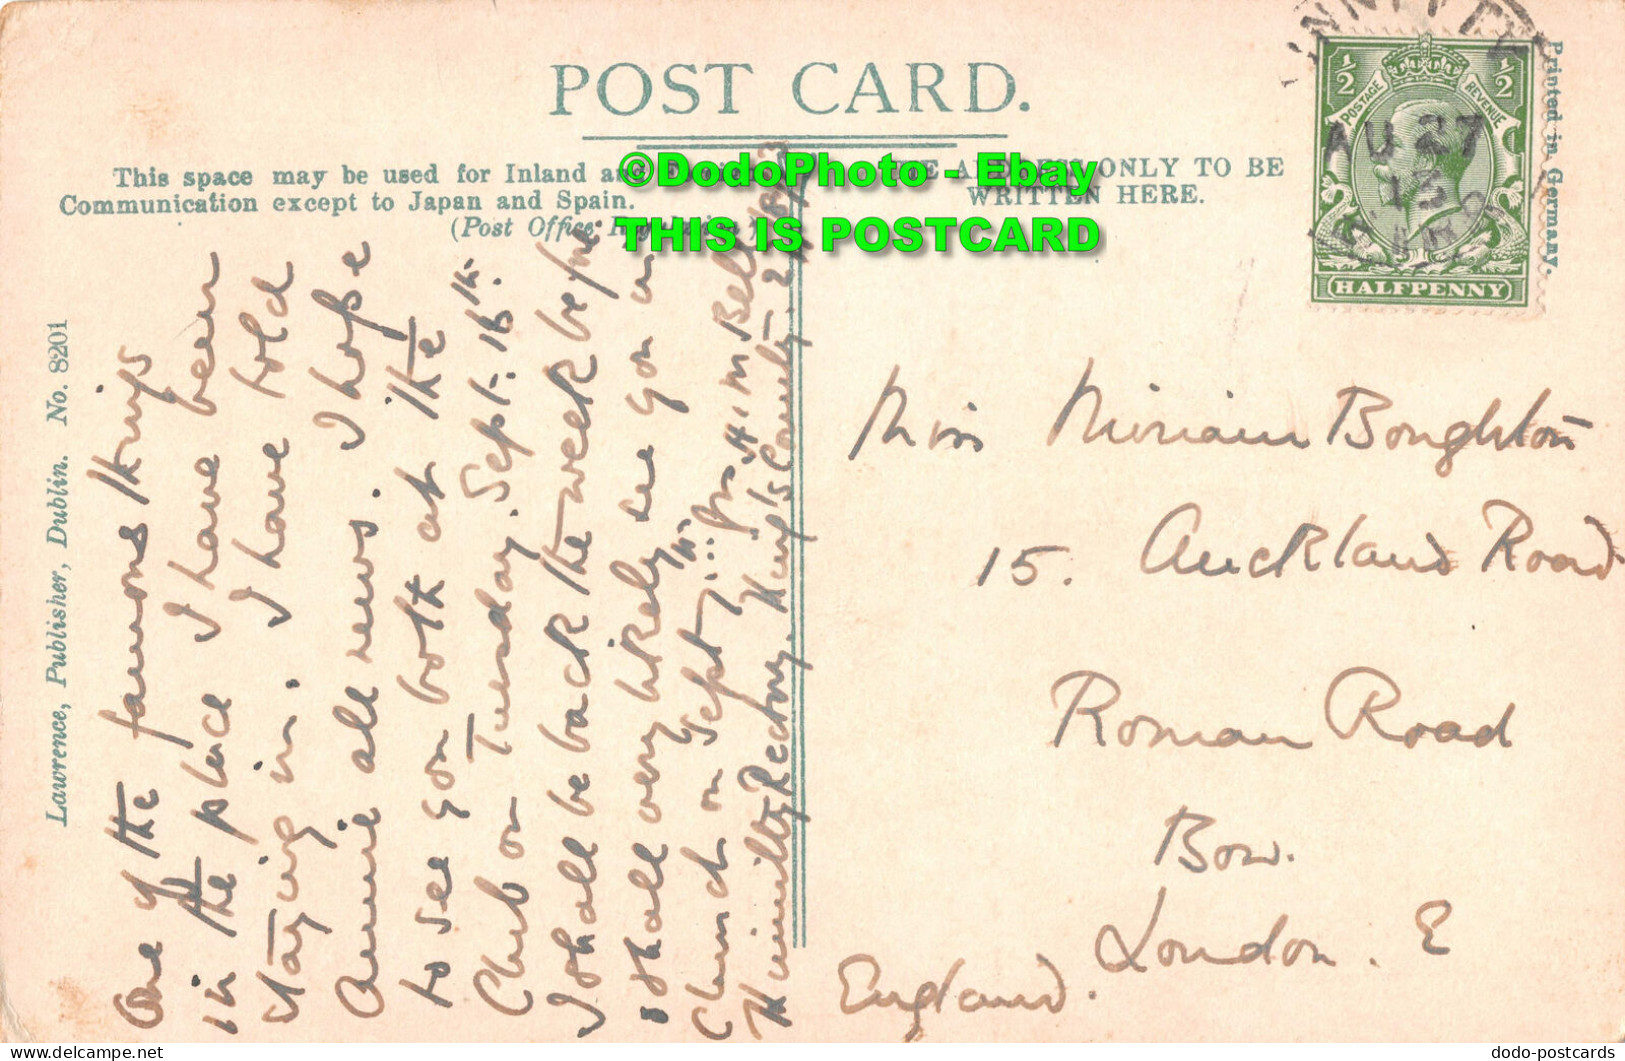 POST CARD.
This space may be used for Inland and
Communication except to Japan and Spain.
(Post Office
ADDRESS ONLY TO BE
WRITTEN HERE.
©DodoPhoto - Ebay
THIS IS POSTCARD
1/2 1/2
POSTAGE REVENUE
HALFPENNY
AU 27
13
Printed in Germany.
Lawrence, Publisher, Dublin. No. 8201
One of the famous things
in the place I have been
staying in. I have told
Annie all news. I hope
to see you both at the
Club on Tuesday. Sept. 16th.
I shall be back the week before
& shall very likely see you in
Church on Sept. H M Bell
Kinnitty Rectory. King's County.
Miss Miriam Boughton
15. Auckland Road
Roman Road
Bow.
London. E
England.
dodo-postcards